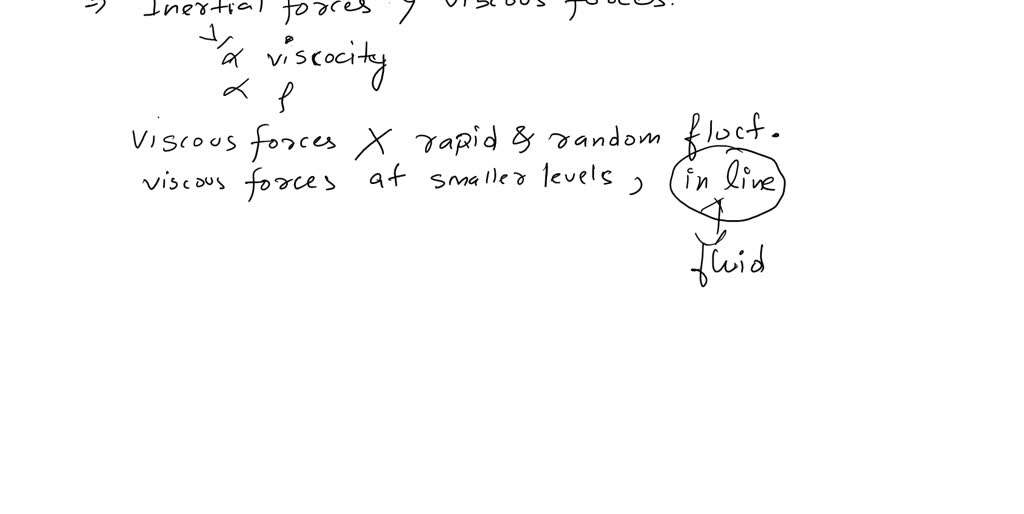 ⇒ Inertial forces > viscous forces.
∝ viscocity
∝ ρ
Viscous forces X rapid & random fluct.
viscous forces at smaller levels, in line
fluid